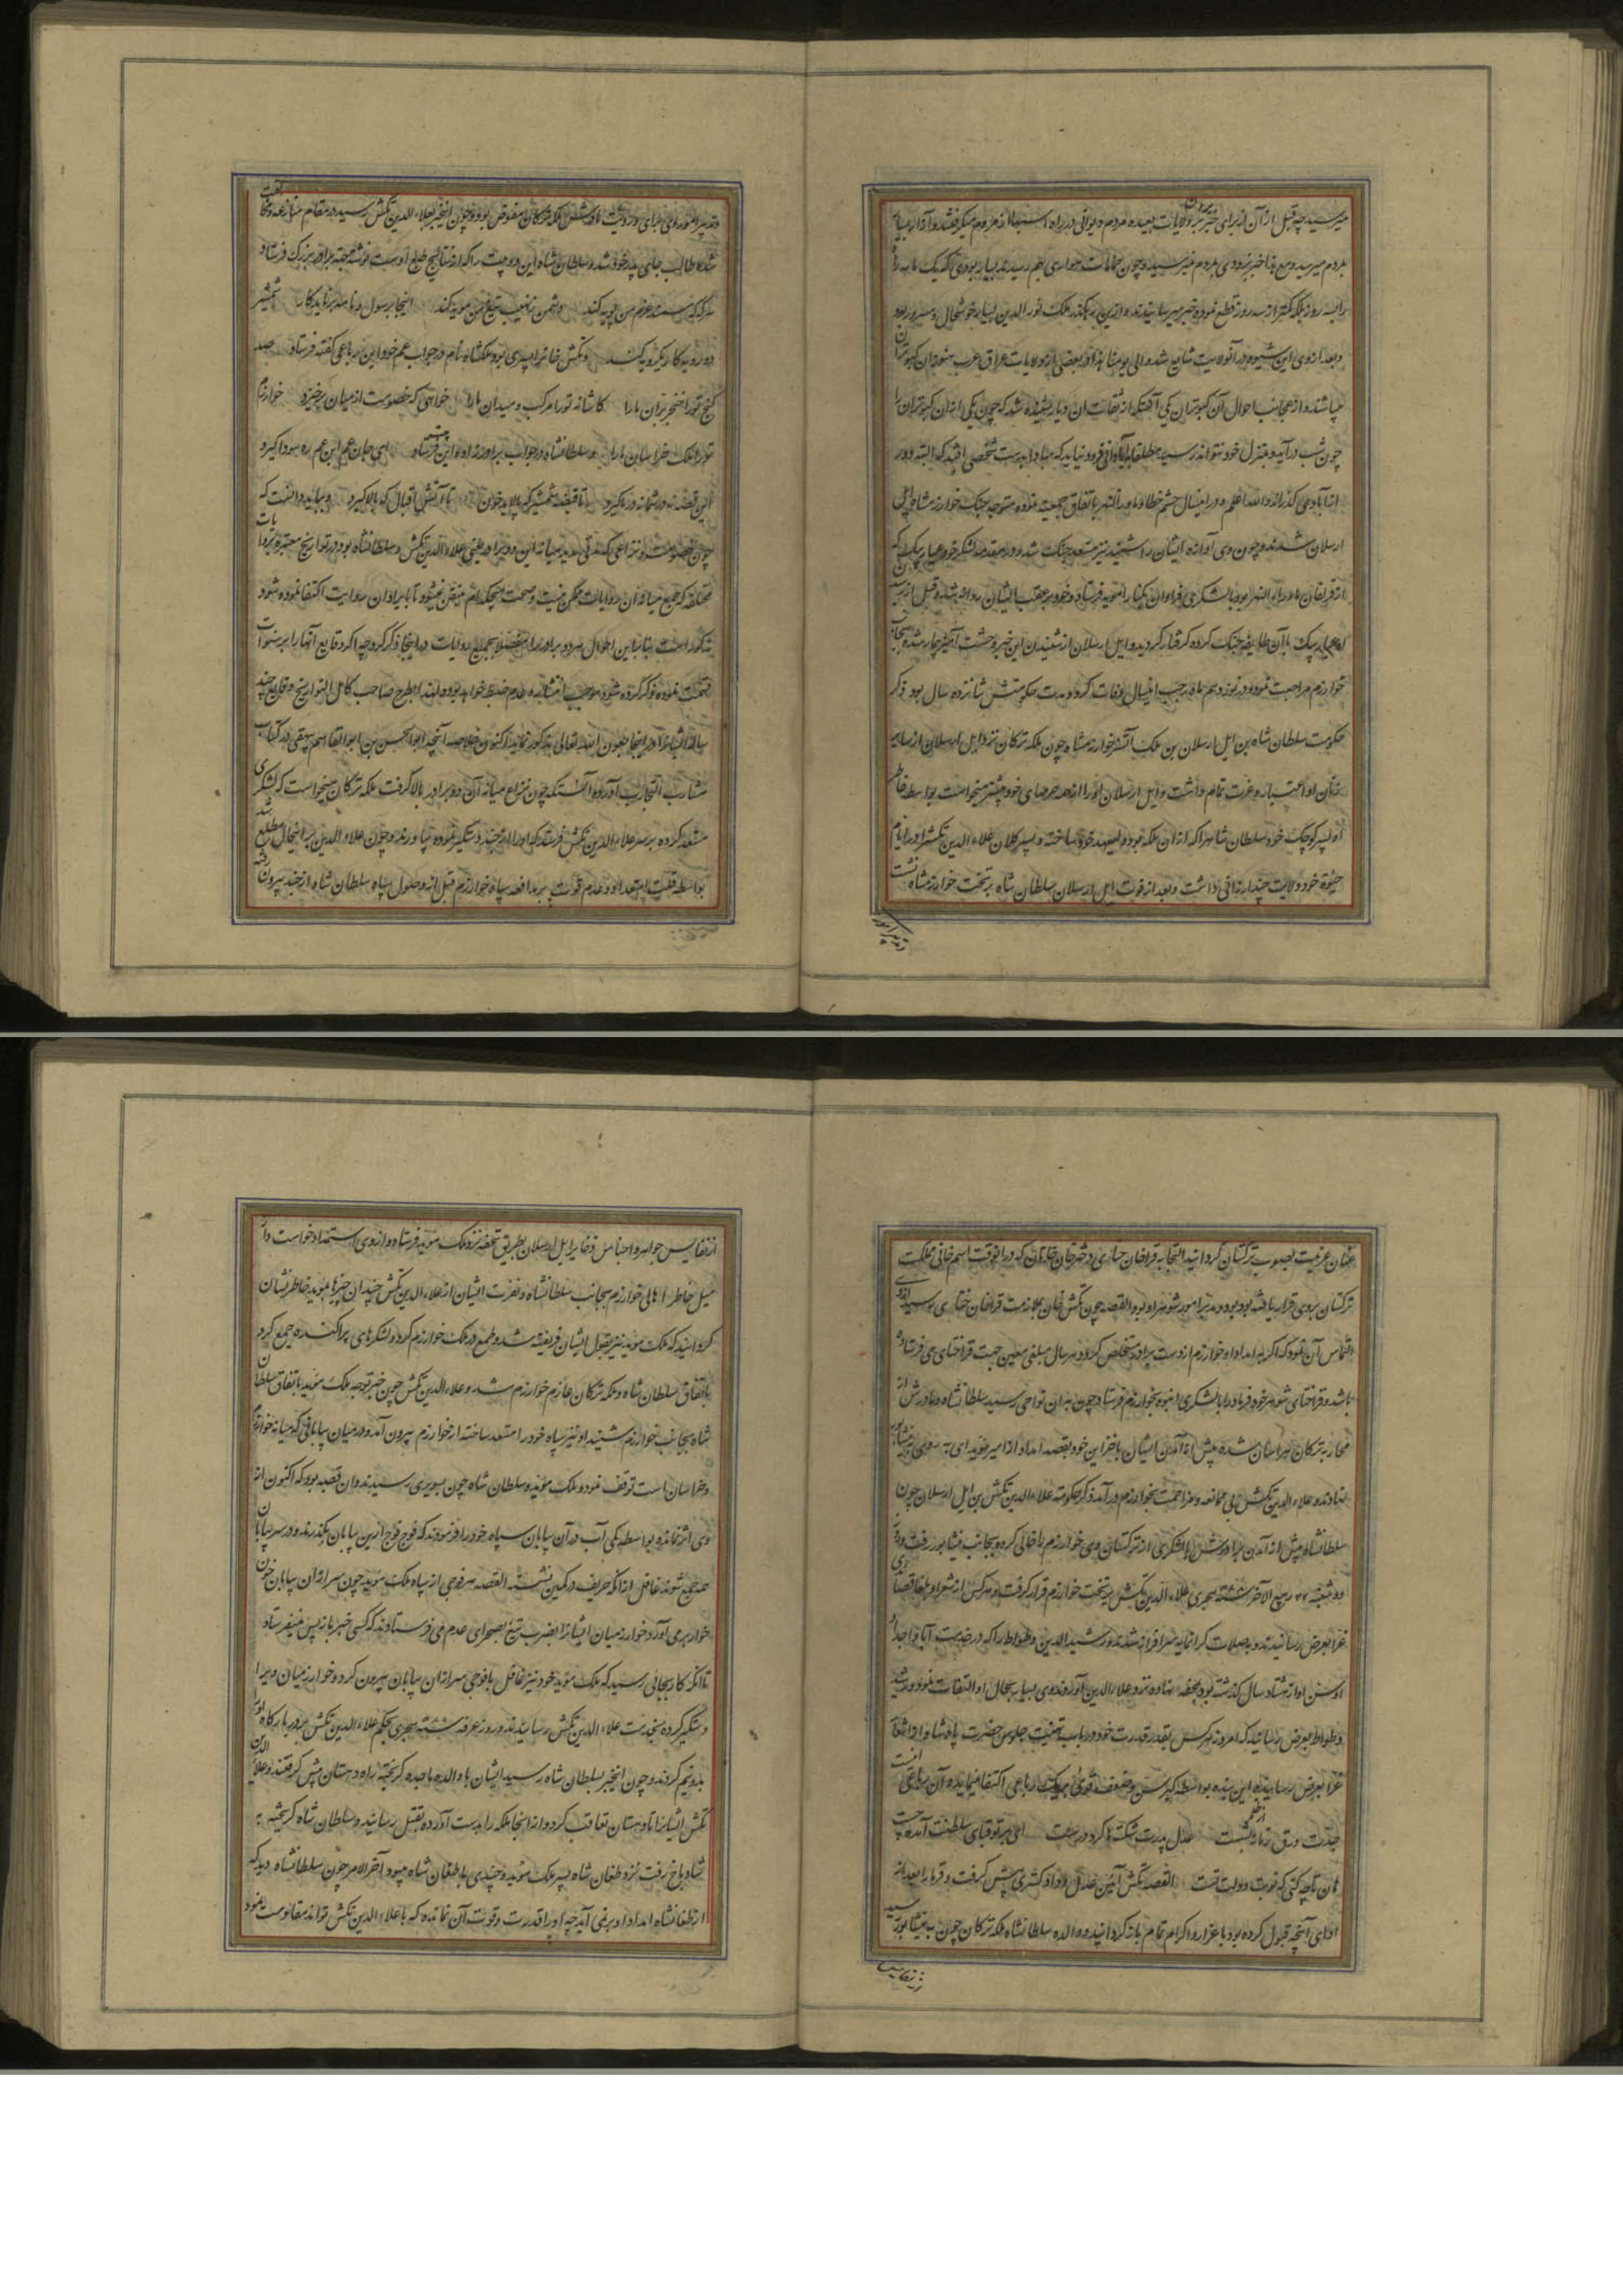 میرسید چه قبل ازان از برای خبر بردن بولایات بعیده مردم دیوانی در راه اسبها از مردم میگرفتند و آزار بسیار
بمردم میرسید و مع هذا خبر بزودی بمردم نمیرسید و چون حمامات هوادی بهم رسیدند بسیار بودی که یک ماهه راه
را بسه روز بلکه کمتر از سه روز قطع نموده خبر میرسانیدند و ازین رهگذر ملک نور الدین بسیار خوشحال و مسرور بود
و بعد از وی این شیوه در آنولایت شایع شد و الی یومنا هذا در بعضی از ولایات عراق عرب هنوز ان کبوتران
میباشند و از عجایب احوال آن کبوتران یکی آنکه از ثقات ان دیار شنیده شد که چون یکی از ان کبوتران را
چون شب درآید و بمنزل خود نتواند رسید مطلقا بآبادانی فرود نیاید که مبادا بدست شخصی افتد که البته دور
از آبادی گذراند والله اعلم و درین سال حشم خطا و ماوراء النهر باتفاق جمعیت نموده متوجه جنک خوارزمشاه ایل
ارسلان شدند و چون وی آوازه ایشان را شنید نیز مستعد جنک شد و در مقدمه لشکر خود عیار بیک که
از قراخان ماوراء النهر بود با لشکری فراوان بکنار آمویه فرستاده و خود بر عقب ایشان روانه شد و قبل از رسیدن
او عیار بیک با آن طایفه جنک کرده گرفتار گردید و ایل ارسلان از شنیدن این خبر وحشت آمیز بیمار شده بجانب
خوارزم مراجعت نمود و در نوزدهم ماه رجب این سال وفات کرد و مدت حکومتش شانزده سال بود ذکر
حکومت سلطان شاه بن ایل ارسلان بن ملک اتسز خوارزمشاه چون ملکه ترکان نزد ایل ارسلان از سایر
زنان او اعتبار و عزت تمام داشت و ایل ارسلان او را از همه حرمهای خود بیشتر میخواست بواسطه خاطر
او پسر کوچک خود سلطان شاه را که از ان ملکه بود ولیعهد خود ساخته و پسر کلان علاء الدین تکش را در ایام
حیوة خود ولایت جند ارزانی داشت و بعد از فوت ایل ارسلان سلطان شاه بر تخت خوارزمشاه نشست
و تدبیر امور
و تدبیر امور وی برای و رویت مادرش ملکه ترکان مفوض بود و چون اینخبر بعلاء الدین تکش رسید در مقام منازعه و مخالفت
شده طالب جای پدر خود شد و سلطان شاه این دو بیت را که از نتایج طبع اوست نوشته بجهة برادر بزرک فرستاد
هر گه که سمند عزم من پویه کند دشمن ز نهیب تیغ من مویه کند اینجا برسول و نامه بر ناید کار شمشیر
دو رویه کار یکرویه کند و تکش خان را پسری بود ملکشاه نام در جواب عم خود این رباعی گفته فرستاد صد
گنج تو را خنجر بران ما را کاشانه تو را مرکب و میدان ما را خواهی که خصومت از میان برخیزد خوارزم
تو را ملک خراسان ما را و سلطانشاه در جواب برادرزاده این بیتین فرستاد ای جان عم این غم ره سودا گیرد
این قصه نه در شما نه در ما گیرد تا قبضه شمشیر که پالاید خون تا آتش اقبال که بالا گیرد و بباید دانست که
چون خصومت و نزاعی که مدتی مدید میانه این دو برادر یعنی علاء الدین تکش و سلطانشاه بود در تواریخ معتبره روایات
مختلفه که جمع میانه آن روایات ممکن نیست و صحت هیچکدام متیقن نمیشود تا بایراد ان روایت اکتفا نموده شود
مذکور است بنابراین احوال هر دو برادر را مفصلا بجمیع روایات در اینجا ذکر کرد چه اگر وقایع آنها را بر سنوات
قسمت نموده ذکر کرده شود موجب انتشار و عدم ضبط خواهد بود و لهذا بطرح صاحب کامل التواریخ وقایع چند
ساله ایشان را در اینجا بعون الله تعالی مذکور نماید اکنون خلاصه آنچه ابو الحسن بن ابو القاسم بیهقی در کتاب
مشارب التجارب آورده آنستکه چون نزاع میانه آن دو برادر بالا گرفت ملکه ترکان میخواست که لشکری
مستعد کرده بر سر علاء الدین تکش فرستد که او را از جند دستگیر نموده بیاورند و چون علاء الدین بر اینحال مطلع شد
بواسطه قلت استعداد و عدم قوت بر مدافعه سپاه خوارزم قبل از وصول سپاه سلطان شاه از جند بیرون رفته
عنان عزیمت بصوب ترکستان گردانید التجا به قراخان ختای و دختر خان خانان که درانوقت اسم خانی مملکت
ترکستان بر وی قرار یافته بود برد و مدبر امور شوهر او بود القصه چون تکش خان بملازمت قراخان ختای رسید از وی
التماس آن نمود که اگر به امداد او خوارزم از دست برادر مستخلص گردد هر سال مبلغی معین جهت قراختای می فرستاده
باشد و قراختای شوهر خود فرما را با لشکری انبوه بخوارزم فرستاد چون بدان نواحی رسید سلطانشاه و مادرش از
محاربه ترکان هراسان شده پیش از آمدن ایشان با خزاین خود بقصد امداد از امیر مؤید ای به روی به نیشابور
نهادند و علاء الدین تکش بی ممانعه و مزاحمت بخوارزم درآمد ذکر حکومت علاء الدین تکش بن ایل ارسلان چون
سلطانشاه پیش از آمدن برادرش با لشکری از ترکستان وی خوارزم را خالی کرده بجانب نیشابور رفت و در
دوشنبه ۲۲ ربیع الآخر سنه هجری علاء الدین تکش بر تخت خوارزم قرار گرفت و هر کس از شعرا و بلغا قصاید
غرا بعرض رسانیدند و بصلات گرانمایه سرافراز شدند و رشید الدین وطواط را که در خدمت آبا و اجداد
او سن او از هشتاد سال گذشته بود بمحفه نهاده نزد علاء الدین آوردند وی بسیار بحال او التفات نمود و رشید
وطواط بعرض رسانید که امروز هر کس بقدر قدرت خود در باب تهنیت جلوس حضرت پادشاه اشعار
غرا بعرض رسانیده این بنده بواسطه کبر سن و ضعف قوی بر یک رباعی اکتفا مینماید و آن رباعی اینست
جدت ورق زمانه از ظلم بشست عدل پدرت شکستها کرد درست ای بر تو قبای سلطنت آمده چست
هان تا چه کنی که نوبت دولت تست القصه تکش آیین عدل و داد گستری پیش گرفت و فرما را بعد از
ادای آنچه قبول کرده بود باعزاز و اکرام تمام باز گردانید و والده سلطانشاه ملکه ترکان چون به نیشابور رسید
از نفایس
از نفایس جواهر و اجناس ذخایر ایل ارسلان بطریق تحفه نزد ملک مؤید فرستاد و از وی استمداد خواست و از
میل خاطر اهالی خوارزم بجانب سلطانشاه و نفرت ایشان از علاء الدین تکش چندان چیزها بمؤید خاطرنشان
گردانید که ملک مؤید نیز بقول ایشان فریفته شد و طمع در ملک خوارزم کرد و لشکرهای پراکنده جمع کرد
باتفاق سلطان شاه و ملکه ترکان عازم خوارزم شد و علاء الدین تکش چون خبر توجه ملک مؤید باتفاق سلطان
شاه بجانب خوارزم شنید او نیز سپاه خود را مستعد ساخته از خوارزم بیرون آمد و در میان بیابانی که میانه خوارزم
و خراسان است توقف نمود و ملک مؤید و سلطان شاه چون بسوبرنی رسیدند و ان قصبه بود که اکنون از
وی اثر نمانده بواسطه کمی آب در آن بیابان سپاه خود را فرمودند که فوج فوج ازین بیابان بگذرند و در سر بیابان
همه جمع شوند غافل از انکه حریف در کمین نشسته القصه هر فوجی از سپاه ملک مؤید چون سر از ان بیابان خون
خوار بر می آورد خوارزمیان ایشانرا بضرب تیغ بصحرای عدم می فرستادند که کسی خبر باز پس نمیفرستاد
تا انکه کار بجائی رسید که ملک مؤید خود نیز غافل با فوجی سر از ان بیابان بیرون کرد و خوارزمیان ویرا
دستگیر کرده بخدمت علاء الدین تکش رسانیدند و روز عرفه سنه هجری بحکم علاء الدین تکش بر در بارگاه او را
بدو نیم کردند و چون اینخبر بسلطان شاه رسید ایشان با والده ماجده گریخته راه دهستان پیش گرفتند و علاء الدین
تکش ایشانرا تا دهستان تعاقب کرد و از انجا ملکه را بدست آورده بقتل رسانید و سلطان شاه گریخته به
شادیاخ رفت نزد طغان شاه پسر ملک مؤید و چندی با طغان شاه میبود آخر الامر چون سلطانشاه دید که
از طغانشاه امداد او بر نمی آید چه او را قدرت و قوت آن نمانده که با علاء الدین تکش تواند مقاومت نمود